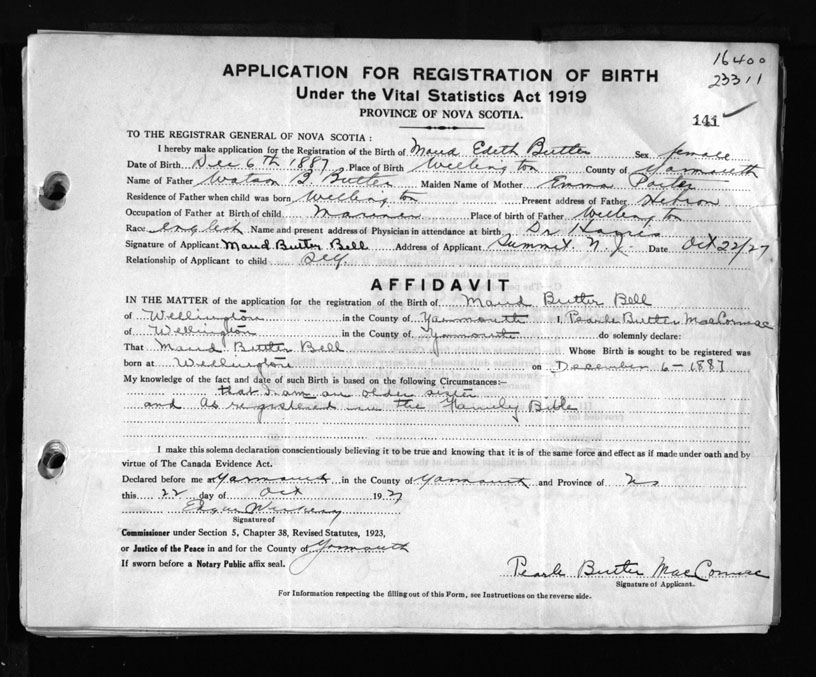 16400
23311
141
APPLICATION FOR REGISTRATION OF BIRTH
Under the Vital Statistics Act 1919
PROVINCE OF NOVA SCOTIA.
TO THE REGISTRAR GENERAL OF NOVA SCOTIA :
I hereby make application for the Registration of the Birth of Maud Edith Butler Sex female
Date of Birth Dec 6th 1887 Place of Birth Wellington County of Yarmouth
Name of Father Watson Butler Maiden Name of Mother Emma Porter
Residence of Father when child was born Wellington Present address of Father Hebron
Occupation of Father at Birth of child Mariner Place of birth of Father Wellington
Race English Name and present address of Physician in attendance at birth Dr Harris
Signature of Applicant Maud Butler Bell Address of Applicant Summit N. J. Date Oct 22/27
Relationship of Applicant to child self
AFFIDAVIT
IN THE MATTER of the application for the registration of the Birth of Maud Butler Bell
of Wellington in the County of Yarmouth I, Pearle Butler MacCormac
of Wellington in the County of Yarmouth do solemnly declare:
That Maud Butler Bell Whose Birth is sought to be registered was
born at Wellington on December 6 - 1887
My knowledge of the fact and date of such Birth is based on the following Circumstances:—
that I am an older sister
and as registered in the Family Bible
I make this solemn declaration conscientiously believing it to be true and knowing that it is of the same force and effect as if made under oath and by
virtue of The Canada Evidence Act.
Declared before me at Yarmouth in the County of Yarmouth and Province of NS
this 22 day of Oct 1927
Edgar
Signature of
Commissioner under Section 5, Chapter 38, Revised Statutes, 1923,
or Justice of the Peace in and for the County of Yarmouth
If sworn before a Notary Public affix seal.
Pearle Butler MacCormac
Signature of Applicant.
For Information respecting the filling out of this Form, see Instructions on the reverse side.